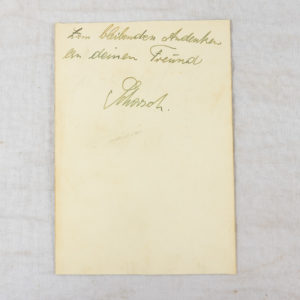 Zum bleibenden Andenken
an deinen Freund
Schorsch.